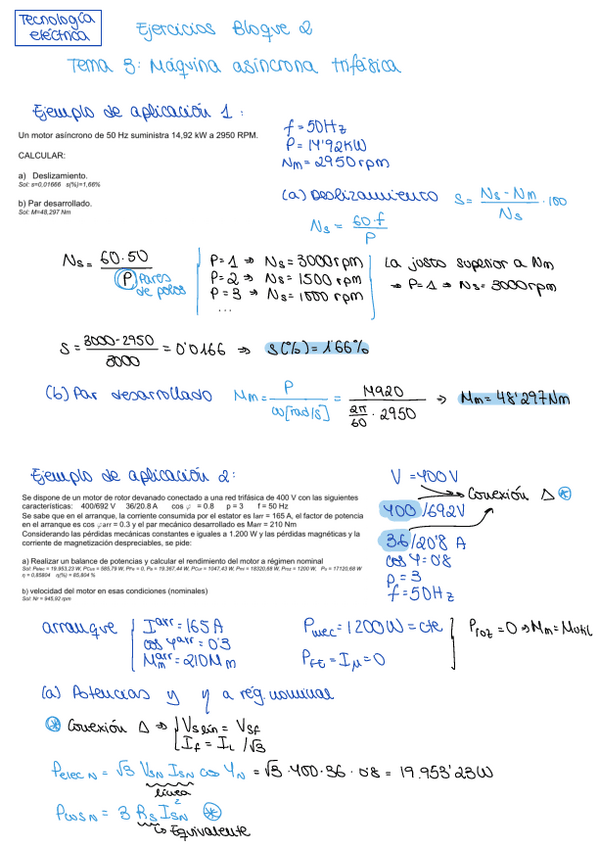 Tecnología
eléctrica
Ejercicios Bloque 2
Tema 3: Máquina asíncrona trifásica
Ejemplo de aplicación 1:
Un motor asíncrono de 50 Hz suministra 14,92 kW a 2950 RPM.
CALCULAR:
a) Deslizamiento.
Sol: s=0,01666 s(%)=1,66%
b) Par desarrollado.
Sol: M=48,297 Nm
f=50Hz
P=14'92KW
Nm=2950rpm
(a) Deslizamiento S = (Ns - Nm)/Ns · 100
Ns = 60·f/P
Ns = 60·50/P
Pares de polos
P=1 ⇒ Ns = 3000rpm
P=2 ⇒ Ns = 1500 rpm
P=3 ⇒ Ns = 1000 rpm
...
La justo superior a Nm
→ P=1 → Ns = 3000rpm
S = (3000-2950)/3000 = 0'0166 ⇒ S(%) = 1'66%
(b) Par desarrollado Mm = P/ω[rad/s] = 14920/(2π/60 · 2950) ⇒ Mm = 48'297Nm
Ejemplo de aplicación 2:
Se dispone de un motor de rotor devanado conectado a una red trifásica de 400 V con las siguientes
características: 400/692 V 36/20.8 A cos φ = 0.8 p = 3 f = 50 Hz
Se sabe que en el arranque, la corriente consumida por el estator es Iarr = 165 A, el factor de potencia
en el arranque es cos φarr = 0.3 y el par mecánico desarrollado es Marr = 210 Nm
Considerando las pérdidas mecánicas constantes e iguales a 1.200 W y las pérdidas magnéticas y la
corriente de magnetización despreciables, se pide:
a) Realizar un balance de potencias y calcular el rendimiento del motor a régimen nominal
b) velocidad del motor en esas condiciones (nominales)
Sol: Nr = 945,92 rpm
V = 400V
Conexión Δ *
400/692V
36/20'8 A
cos φ = 0'8
p = 3
f = 50Hz
arranque
Iarr = 165A
cos φarr = 0'3
Mmarr = 210Nm
Pmec = 1200W = cte
PFe = Iμ = 0
Proz = 0 ⇒ Mm = Mutil
(a) Potencias y η a rég. nominal
* Conexión Δ ⇒ Vslín = Vsf
If = IL/√3
Pelec N = √3 VSN ISN cos φN = √3 · 400 · 36 · 0'8 = 19.953'23W
línea
PcuSN = 3 Rs ISN² *
↳ Equivalente